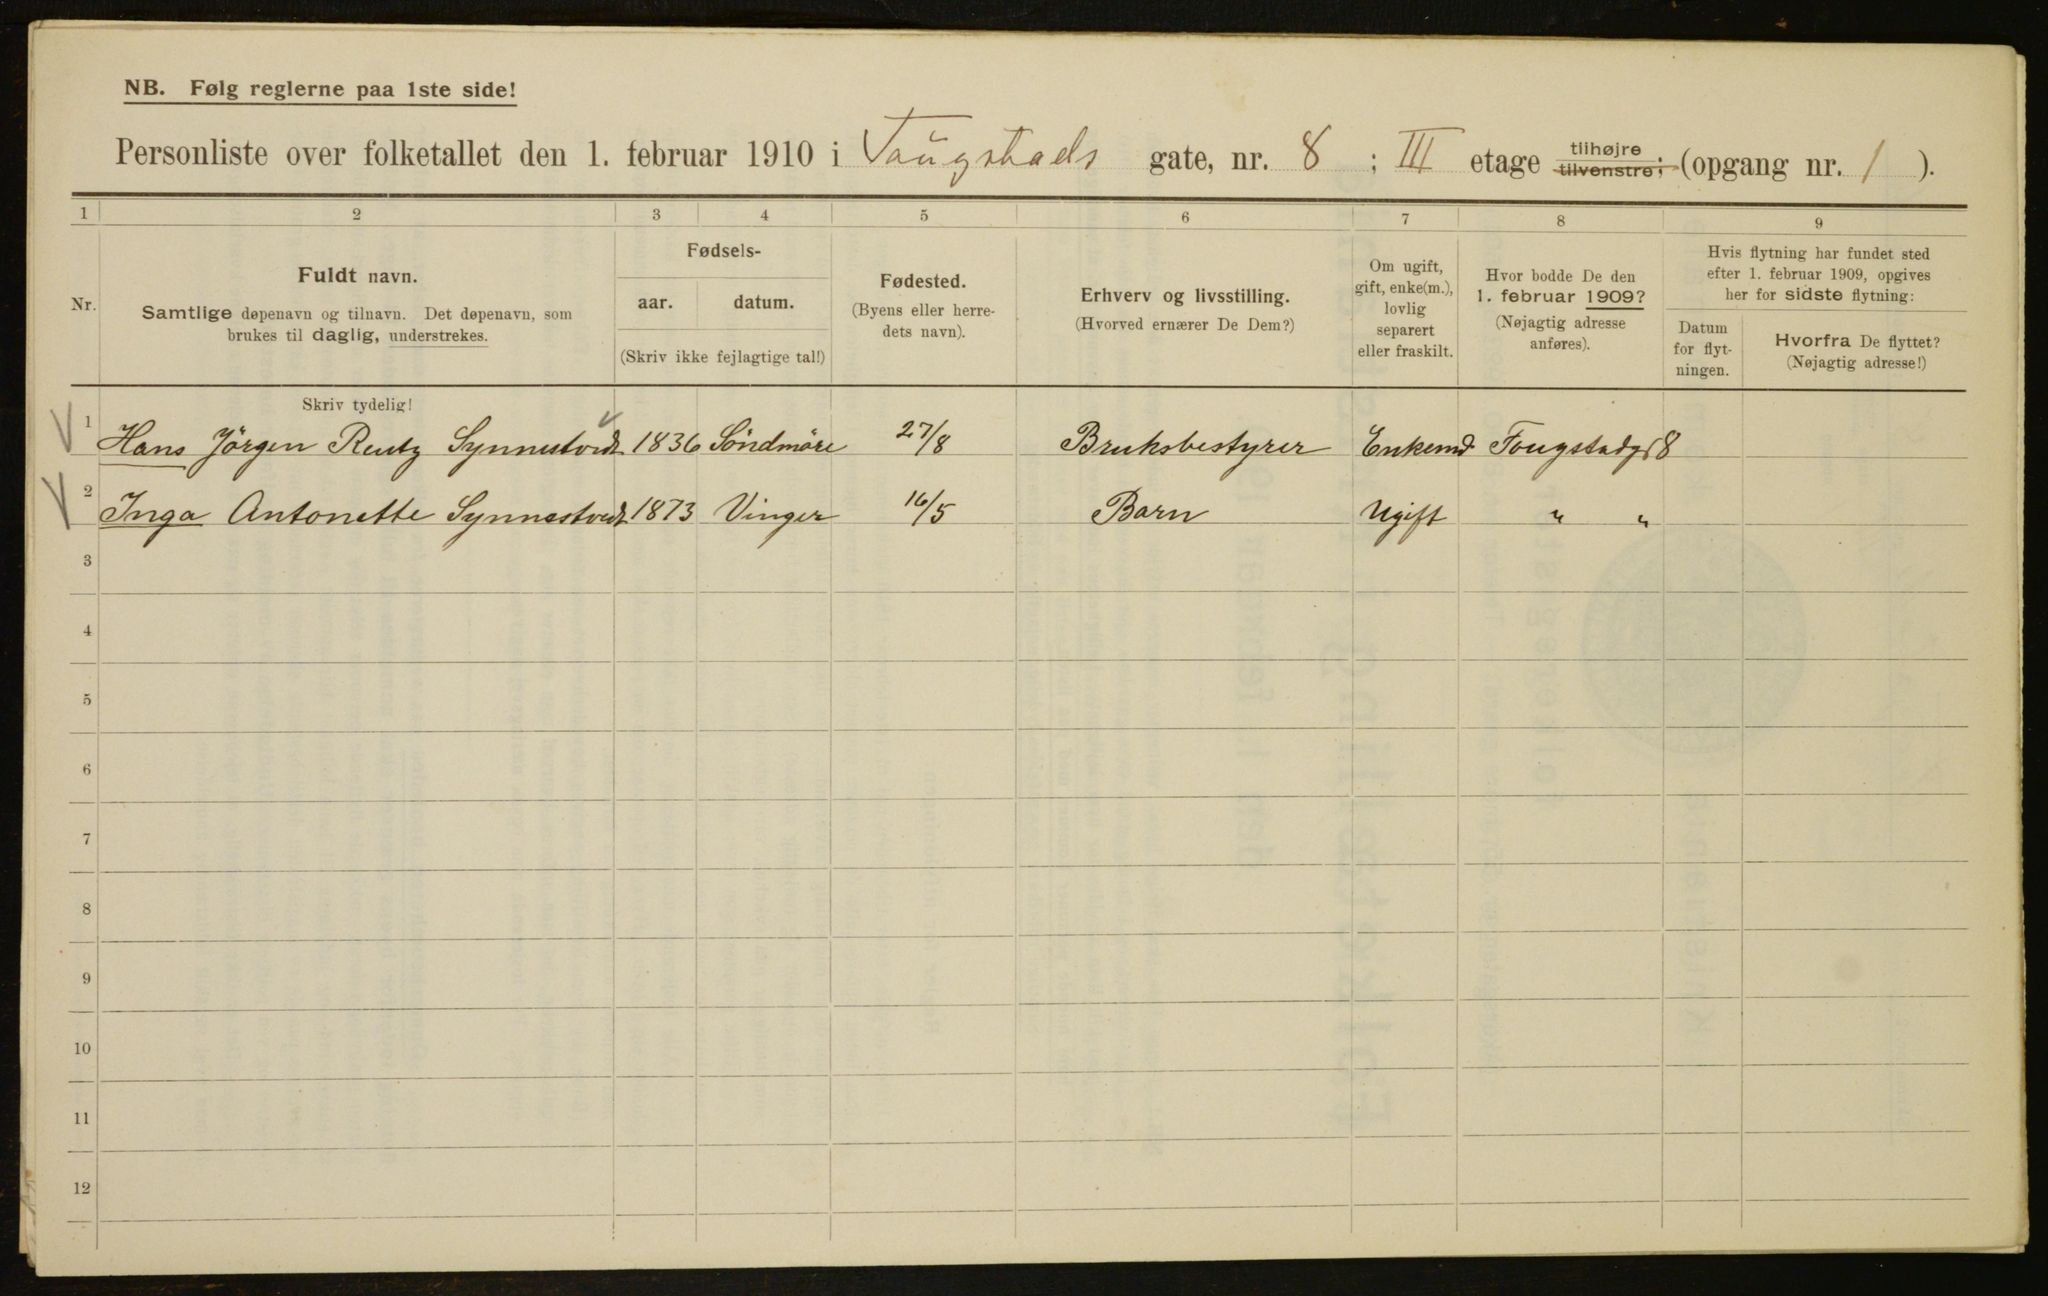 NB. Følg reglerne paa 1ste side!
Personliste over folketallet den 1. februar 1910 i Fougstads gate, nr. 8 ; III etage tilhøjre tilvenstre; (opgang nr. 1 ).
1 2 3 4 5 6 7 8 9
Nr.
Fuldt navn.
Samtlige døpenavn og tilnavn. Det døpenavn, som
brukes til daglig, understrekes.
Fødsels-
aar. datum.
(Skriv ikke fejlagtige tal!)
Fødested.
(Byens eller herre-
dets navn).
Erhverv og livsstilling.
(Hvorved ernærer De Dem?)
Om ugift,
gift, enke(m.),
lovlig
separert
eller fraskilt.
Hvor bodde De den
1. februar 1909?
(Nøjagtig adresse
anføres).
Hvis flytning har fundet sted
efter 1. februar 1909, opgives
her for sidste flytning:
Datum
for flyt-
ningen.
Hvorfra De flyttet?
(Nøjagtig adresse!)
Skriv tydelig!
1 Hans Jörgen Reutz Synnestvedt 1836 Söndmöre 27/8 Bruksbestyrer Enkemd Fougstadgt 8
2 Inga Antonette Synnestvedt 1873 Vinger 16/5 Barn Ugift " "
3
4
5
6
7
8
9
10
11
12